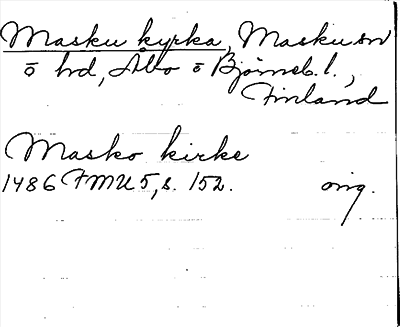 Masku kyrka, Masku sn
o hd, Åbo o Björneb. l.,
Finland
Masko kirke
1486 FMU 5, s. 152. orig.